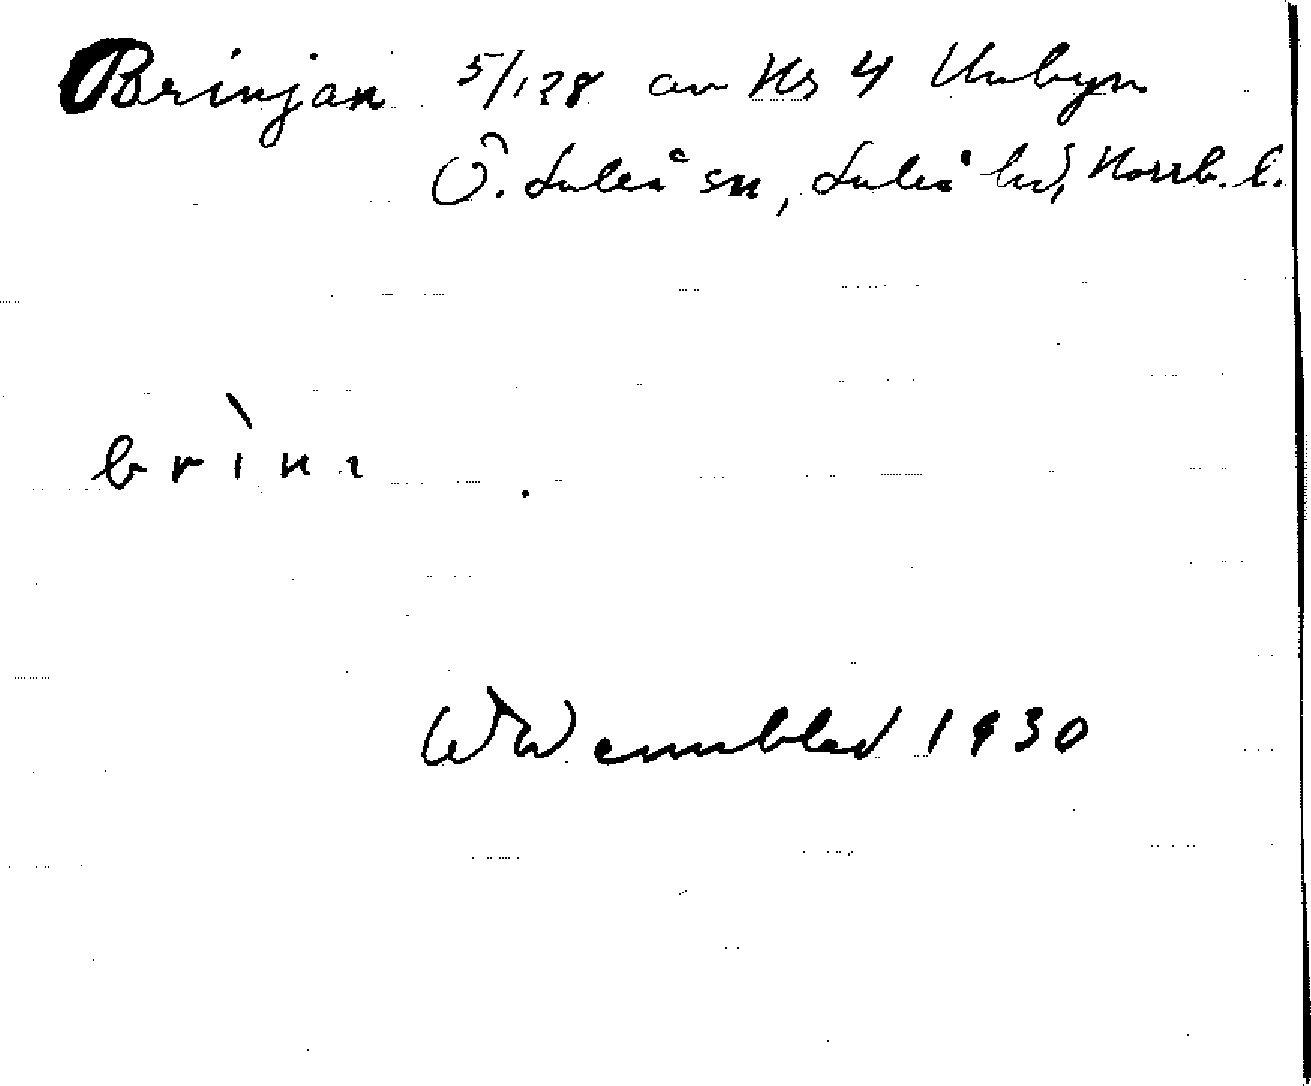 Brinjan 5/128 av Hs 4 Unbyn
Ö. Luleå sn, Luleå hd, Norrb. l.
brìnı
WWennblad 1930